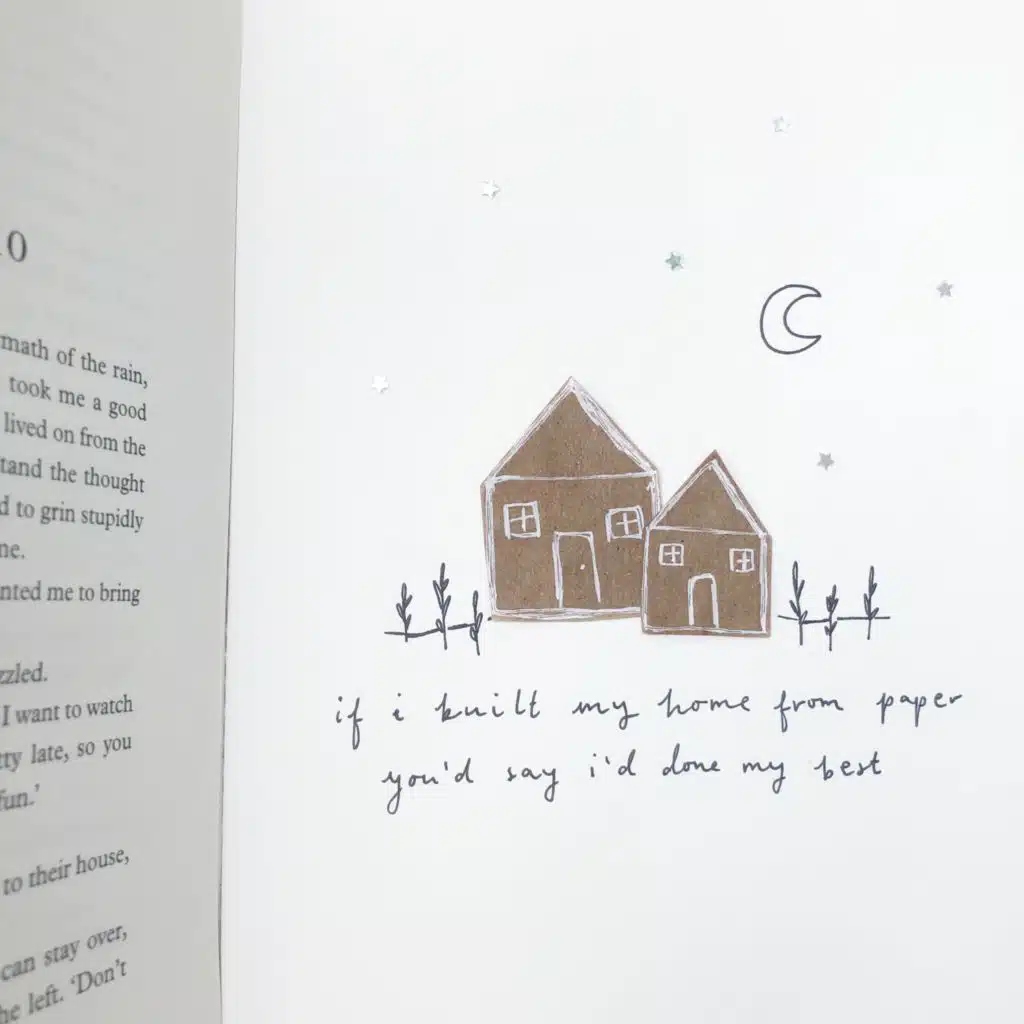 0
math of the rain,
took me a good
lived on from the
tand the thought
d to grin stupidly
ne.
nted me to bring
zzled.
I want to watch
tty late, so you
fun.'
to their house,
can stay over,
he left. 'Don't
if i built my home from paper
you'd say i'd done my best